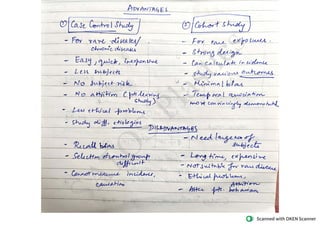 ADVANTAGES
① Case Control Study
- For rare disease/
chronic disease
- Easy, quick, inexpensive
- Less subjects
- No subject risk
- No attrition (pt leaving
study)
- Less ethical problems
- Study diff. etiologies
② Cohort study
- For rare exposures.
- Strong design
- Can calculate incidence
- study various outcomes
- Minimal bias
- Temporal association
more convincingly demonstrated
DISADVANTAGES
- Recall bias
- Selection of control group
difficult
- Cannot measure incidence,
causation
- Need large no of
subjects
- Long time, expensive
- Not suitable for rare disease
- Ethical problems,
attrition
- Alter pts. behaviour
Scanned with OKEN Scanner